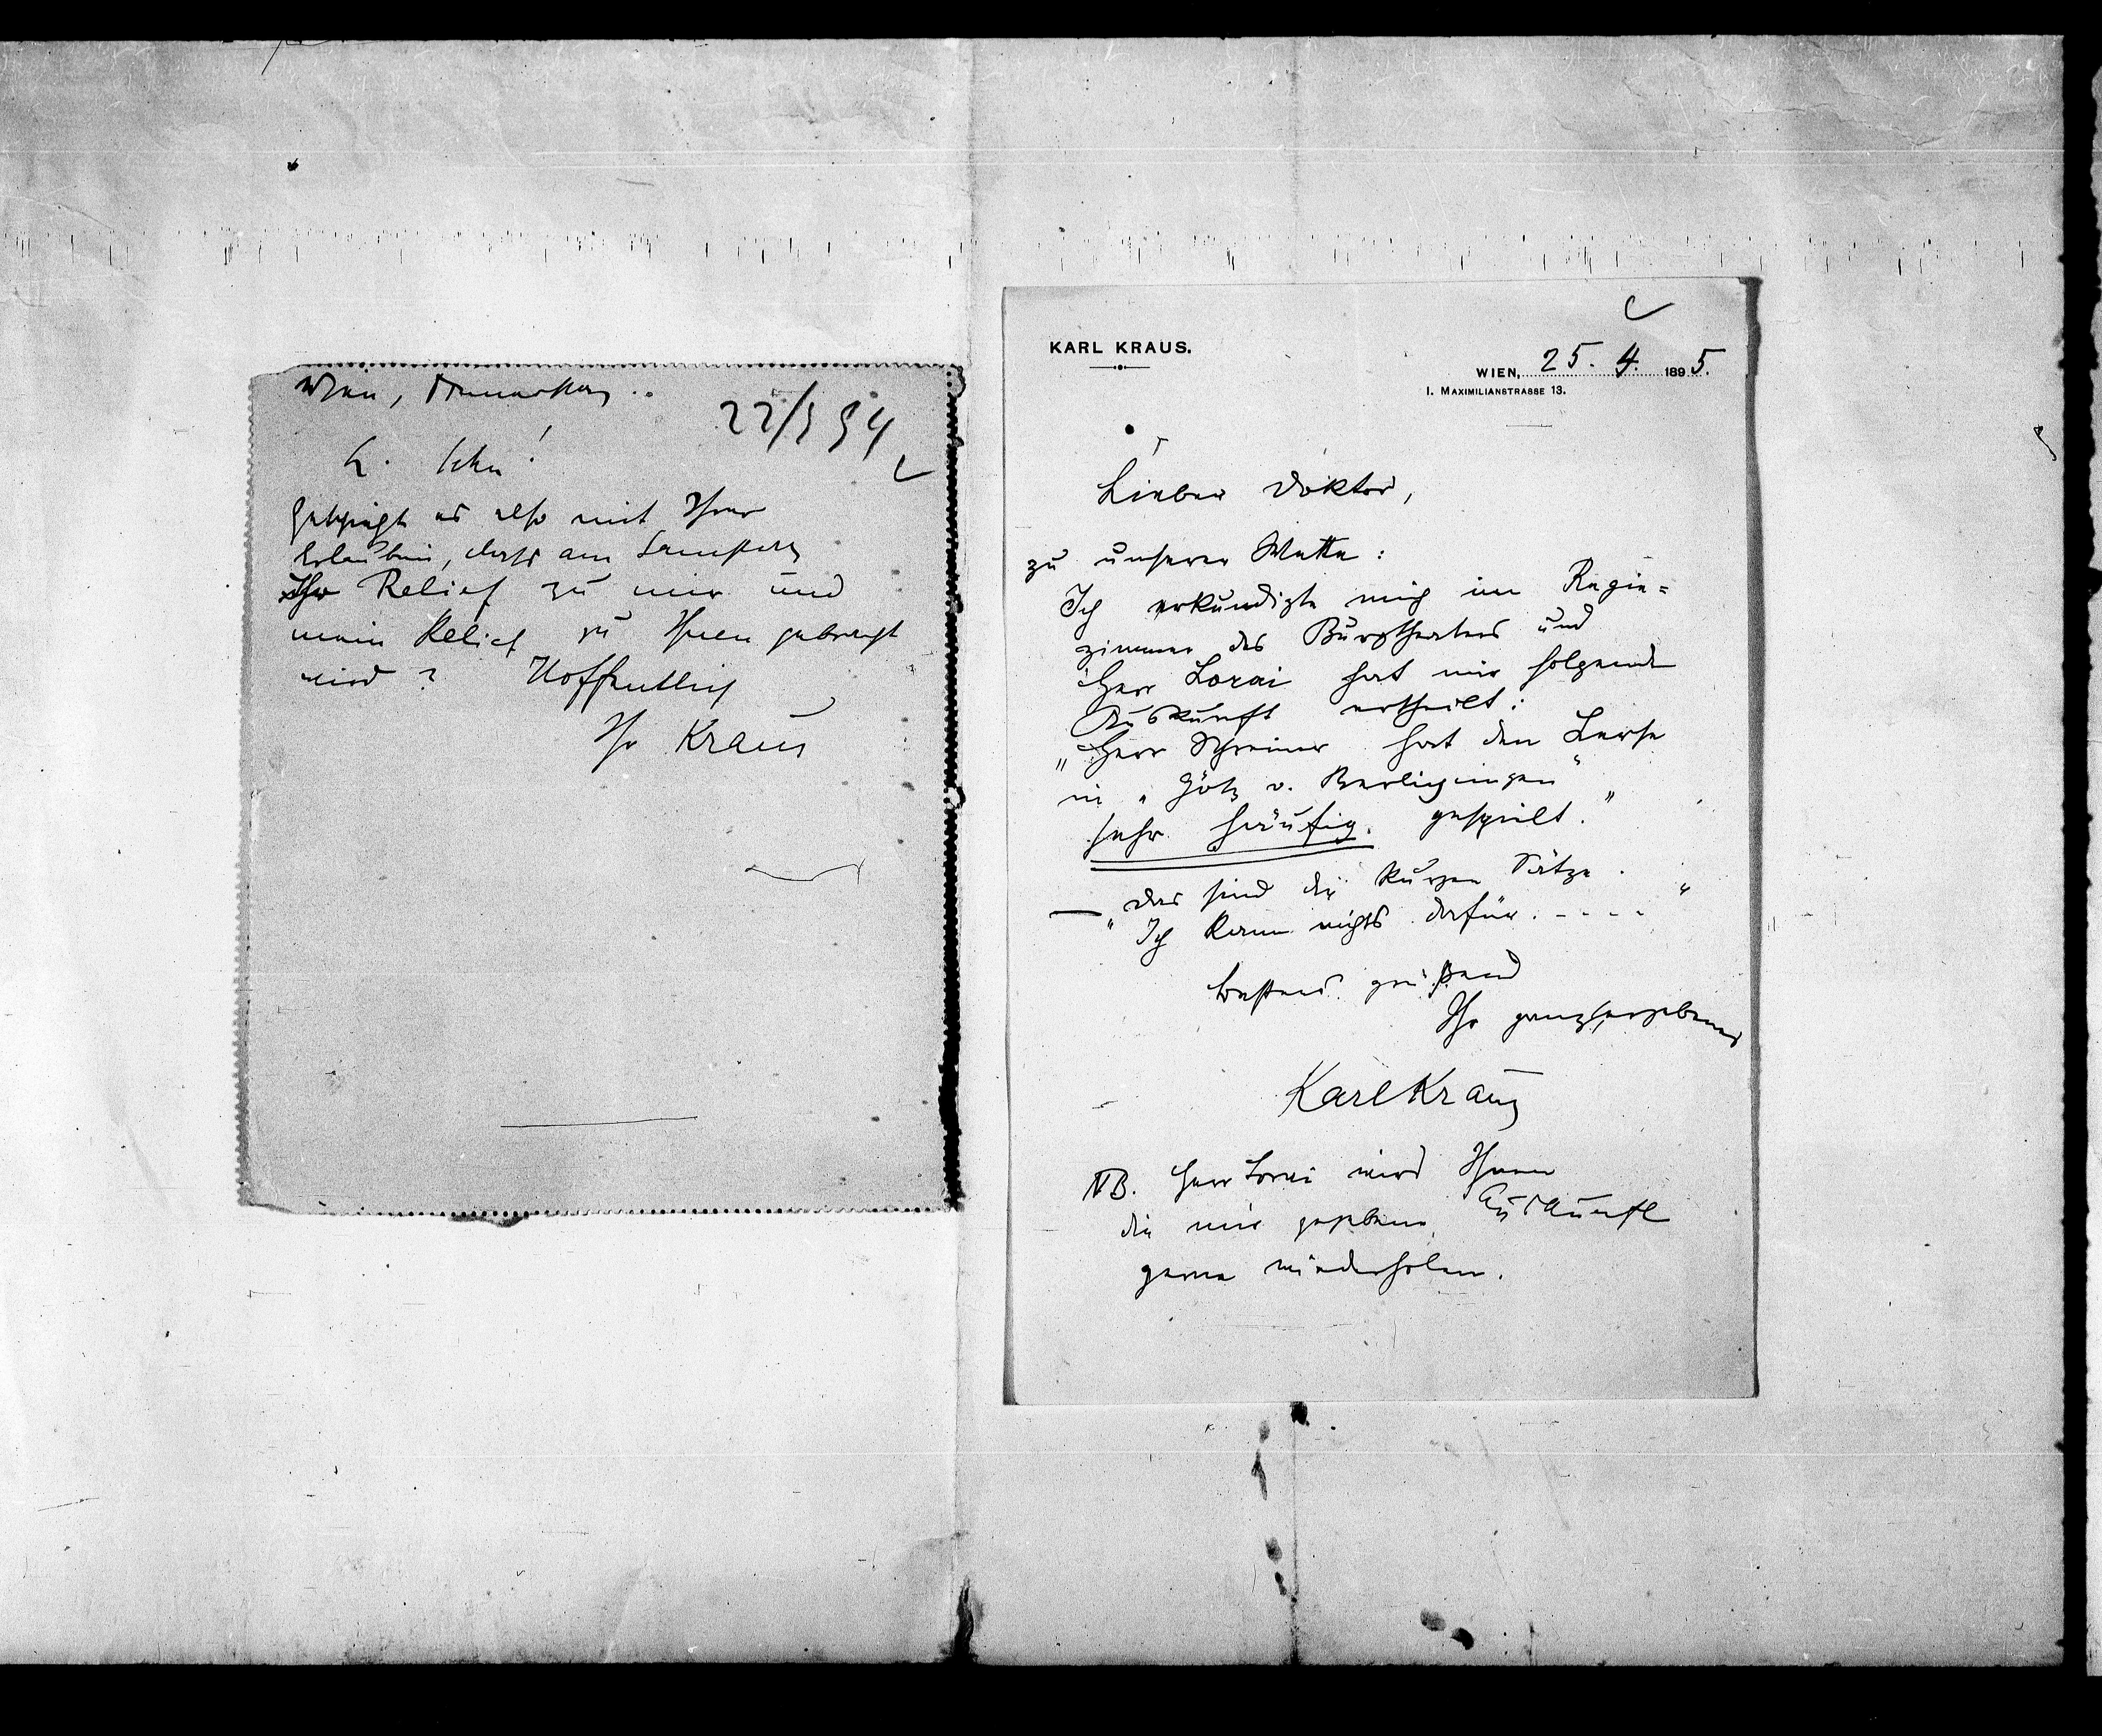 Wien, Donnerstag..
22/3 94
L. Schn!
Geschieht es also mit Ihrer
Erlaubnis, dass am Samstag
Ihr Relief zu mir und
mein Relief zu Ihnen gebracht
wird? Hoffentlich
Ihr Kraus
KARL KRAUS.
WIEN, 25. 4. 1895.
I. MAXIMILIANSTRASSE 13.
Lieber Doktor,
zu unserer Wette:
Ich erkundigte mich im Regie=
zimmer des Burgtheaters und
Herr Lorai hat mir folgende
Auskunft ertheilt:
„Herr Schreiner hat den Lerse
in „Götz v. Berlichingen“
sehr häufig gespielt.“
— „Das sind die kurzen Sätze.
Ich kann nichts dafür. – – – –“
Bestens grüßend
Ihr ganz ergebener
Karl Kraus
NB. Herr Lorai wird Ihnen
die mir gegebene Auskunft
gerne wiederholen.